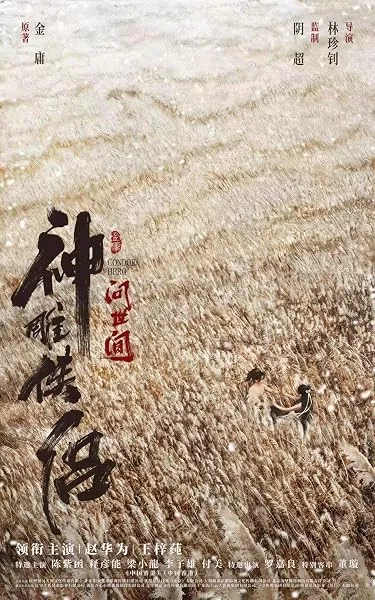 导演
林珍钊
监制
阴超
原著
金庸
神雕侠侣
金庸
CONDOR
HERO
问世间
领衔主演 赵华为 王梓莼
特邀主演 陈紫函 释彦能 梁小龙 李子雄 付美 特邀出演 罗嘉良 特别客串 董璇
(中国香港) (中国香港)